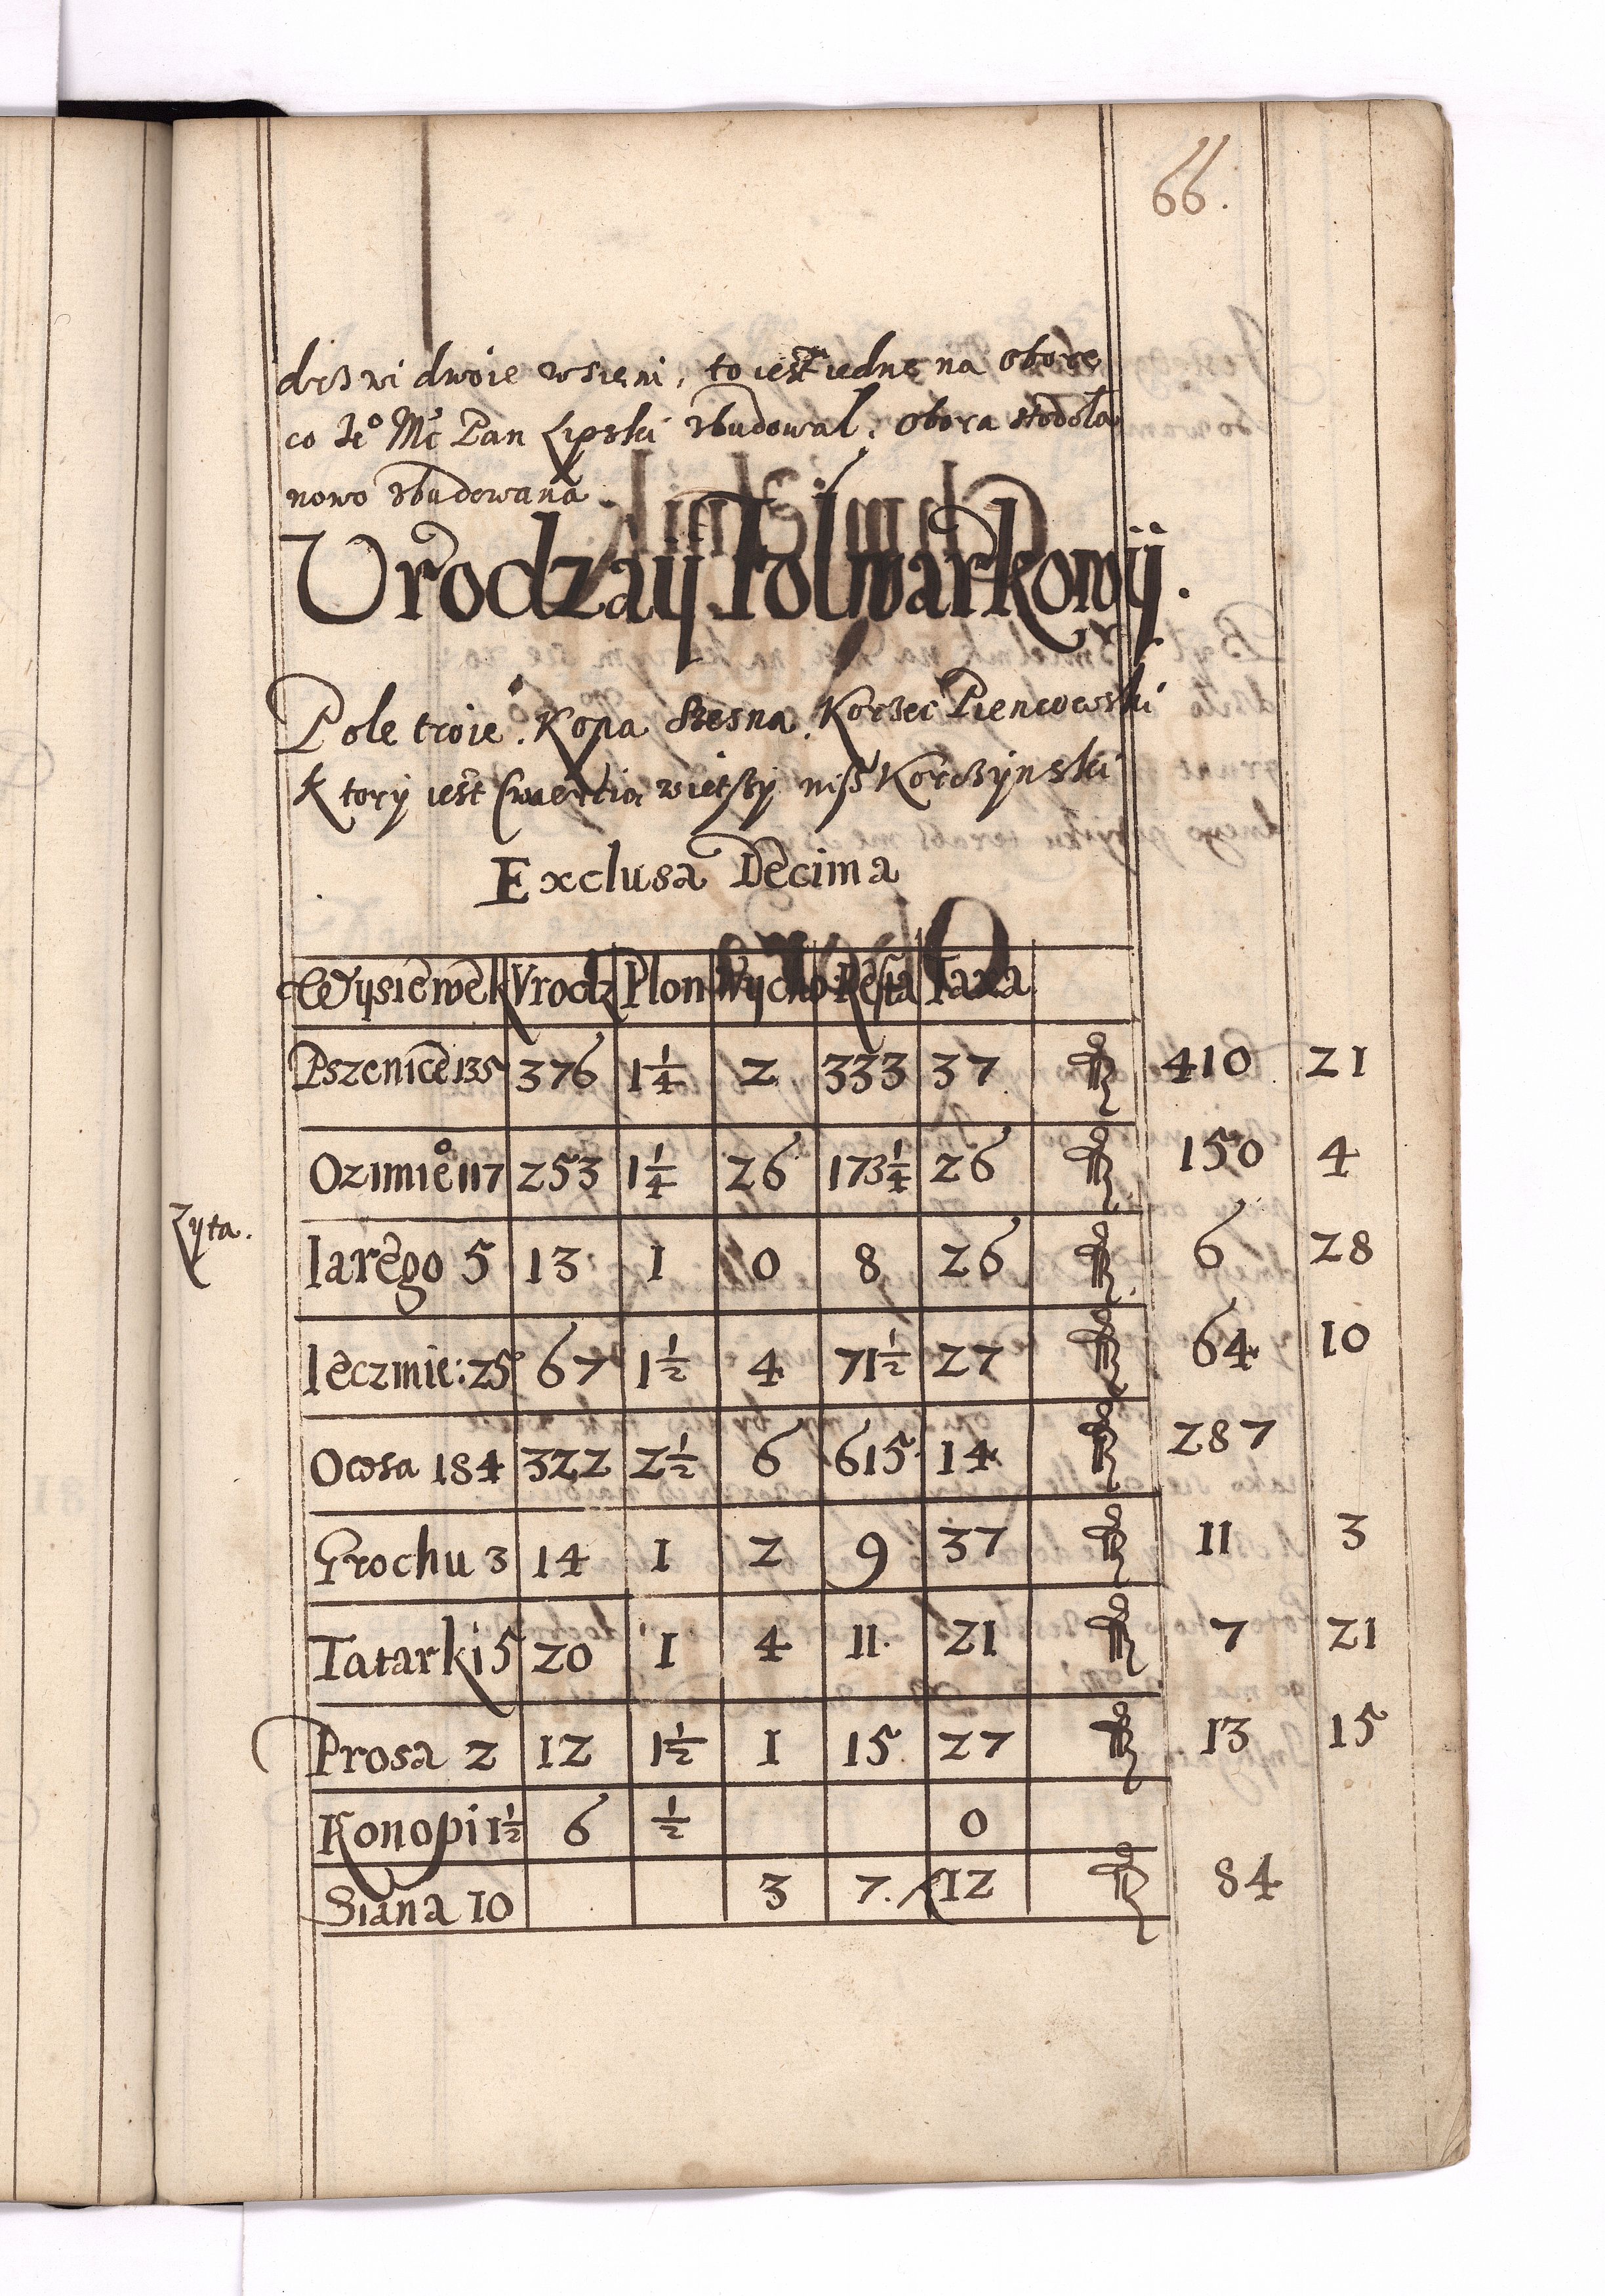 66.
drzwi dwoie wsieni, to iest iedne na oborę
co Ie° Mć Pan Lipski zbudował. obora stodoła
nowo zbudowana
Vrodzaij Folwarkowij.
Pole troie. Kopa Szesna. Korzec Piencowski
Ktorij iest Cwiercią wietszij nisz Korczijnski
Exclusa Decima
Wijsiewek Vrodz Plon Wijcho Resta Taxa
Pszenice 135 376 1 1/4 2 333 37 410 21
Ozimie° 117 253 1 1/4 26 173 1/4 26 150 4
Zyta.
Iarego 5 13 1 0 8 26 6 28
Ieczmie: 25 67 1 1/2 4 71 1/2 27 64 10
Owsa 184 322 2 1/2 6 615 14 287
Grochu 3 14 1 2 9 37 11 3
Tatarki 5 20 1 4 11. 21 7 21
Prosa 2 12 1 1/2 1 15 27 13 15
Konopi 1 1/2 6 1/2 0
Siana 10 3 7. 12 84